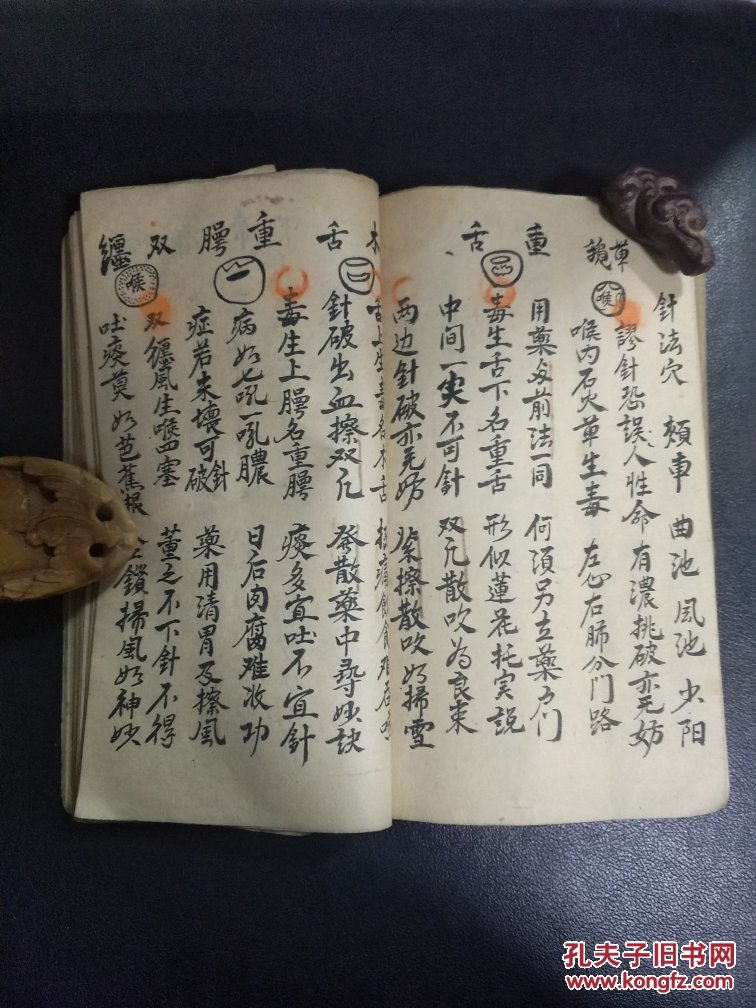 針法穴 頰車 曲池 風池 少阳
謬針恐誤人性命 有濃挑破亦无妨
草
鵝
喉
喉內石火草生毒 左心右肺分门路
用藥与前法一同 何須另立藥方门
重舌
毒生舌下名重舌 形似蓮花托实説
中间一尖不可針 双
散吹為良
两边針破亦无妨 紫擦散吹如掃雪
木舌
舌上生毒名木舌
針破出血擦双 發散藥中尋妙訣
重腭
毒生上腭名重腭 痰多宜吐不宜針
病如七吼一吼膿 日后肉腐难收功
症若未壞可針破 藥用清胃及擦風
双纏
喉
双纏風生喉四塞 董之不下針不得
吐痰莫如芭蕉根 鎖掃風如神妙
孔夫子旧书网
www.kongfz.com